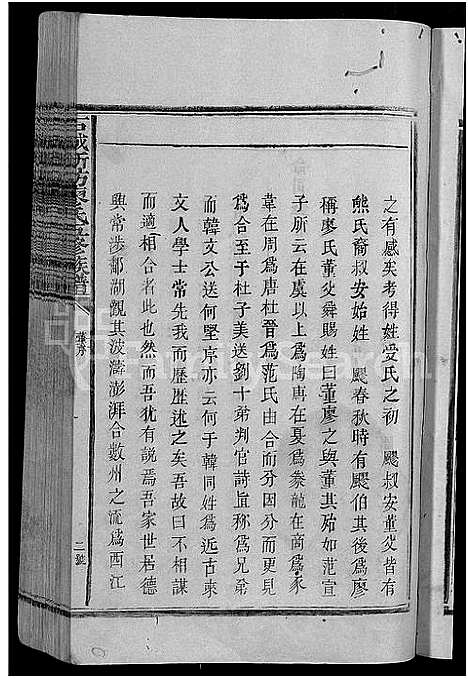 之有感矣考得姓受氏之初 颺叔安董父皆有
熊氏裔叔安始姓 颺春秋時有颺伯其後爲廖
稱廖氏董父舜賜姓曰董廖之與董其殆如范宣
子所云在虞以上爲陶唐在夏爲豢龍在商爲豕
韋在周爲唐杜晉爲范氏由合而分因分而更見
爲合至于杜子美送劉十弟判官詩直稱爲兄弟
而韓文公送何堅序亦云何于韓同姓爲近古來
文人學士常先我而歷歷述之矣吾故曰不相謀
而適相合者此也然而吾猶有說焉吾家世若德
興常涉鄱湖觀其波濤澎湃合數州之流爲西江
氏五修族譜
二號